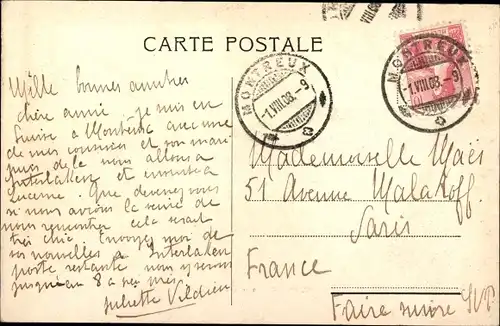 CARTE POSTALE
MONTREUX
-1.VIII.08.-9
MONTREUX
-1.VIII.08.-9
VIII.08
Mille bonnes amitiés
chère amie je suis en
Suisse à Montreux avec une
de mes cousines et son mari
puis de là nous allons à
Interlaken et ensuite à
Lucerne. Que devenez vous
si nous avions la veine de
nous rencontrer cela serait
très chic. Envoyez moi de
vos nouvelles à Interlaken
poste restante nous y serons
jusqu'au 8 à peu près.
Juliette Vildieu
Mademoiselle Maës
51 Avenue Malakoff
Paris
France
Faire suivre S.V.P.